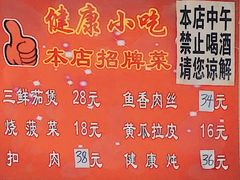 健康小吃
本店招牌菜
本店中午
禁止喝酒
请您谅解
三鲜茄煲 28元 鱼香肉丝 34元
烧菠菜 18元 黄瓜拉皮 16元
扣肉 38元 健康炖 36元